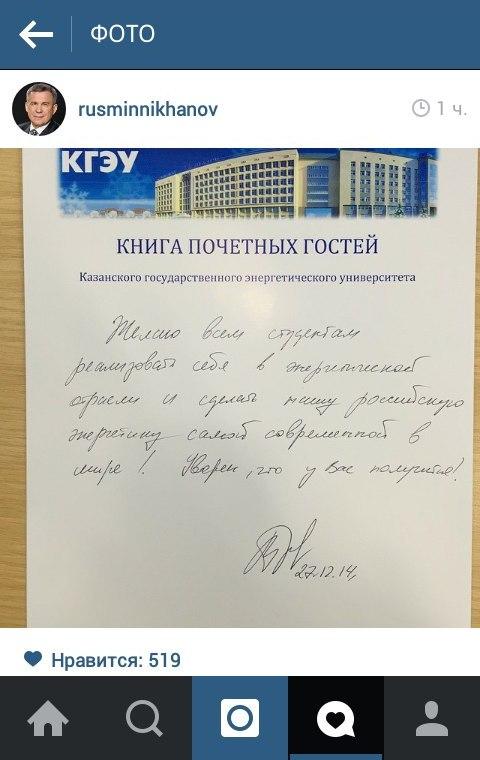 ФОТО
rusminnikhanov
1 ч.
КГЭУ
КНИГА ПОЧЕТНЫХ ГОСТЕЙ
Казанского государственного энергетического университета
Желаю всем студентам
реализовать себя в энергетической
отрасли и сделать нашу российскую
энергетику самой современной в
мире! Уверен, что у Вас получится!
27.12.14,
Нравится: 519